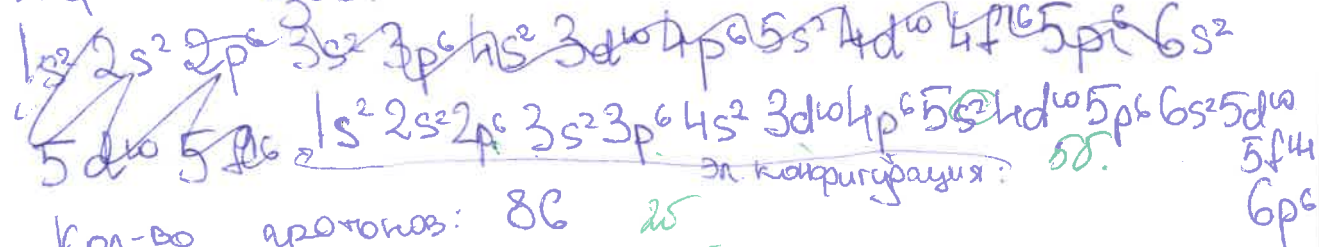 1s² 2s² 2p⁶ 3s² 3p⁶ 4s² 3d¹⁰ 4p⁶ 5s² 4d¹⁰ 4f¹⁶ 5p⁶ 6s²
5d¹⁰
1s² 2s² 2p⁶ 3s² 3p⁶ 4s² 3d¹⁰ 4p⁶ 5s² 4d¹⁰ 5p⁶ 6s² 5d¹⁰
5f¹⁴
6p⁶
эл. конфигурация: 5б.
Кол-во протонов: 86 2б